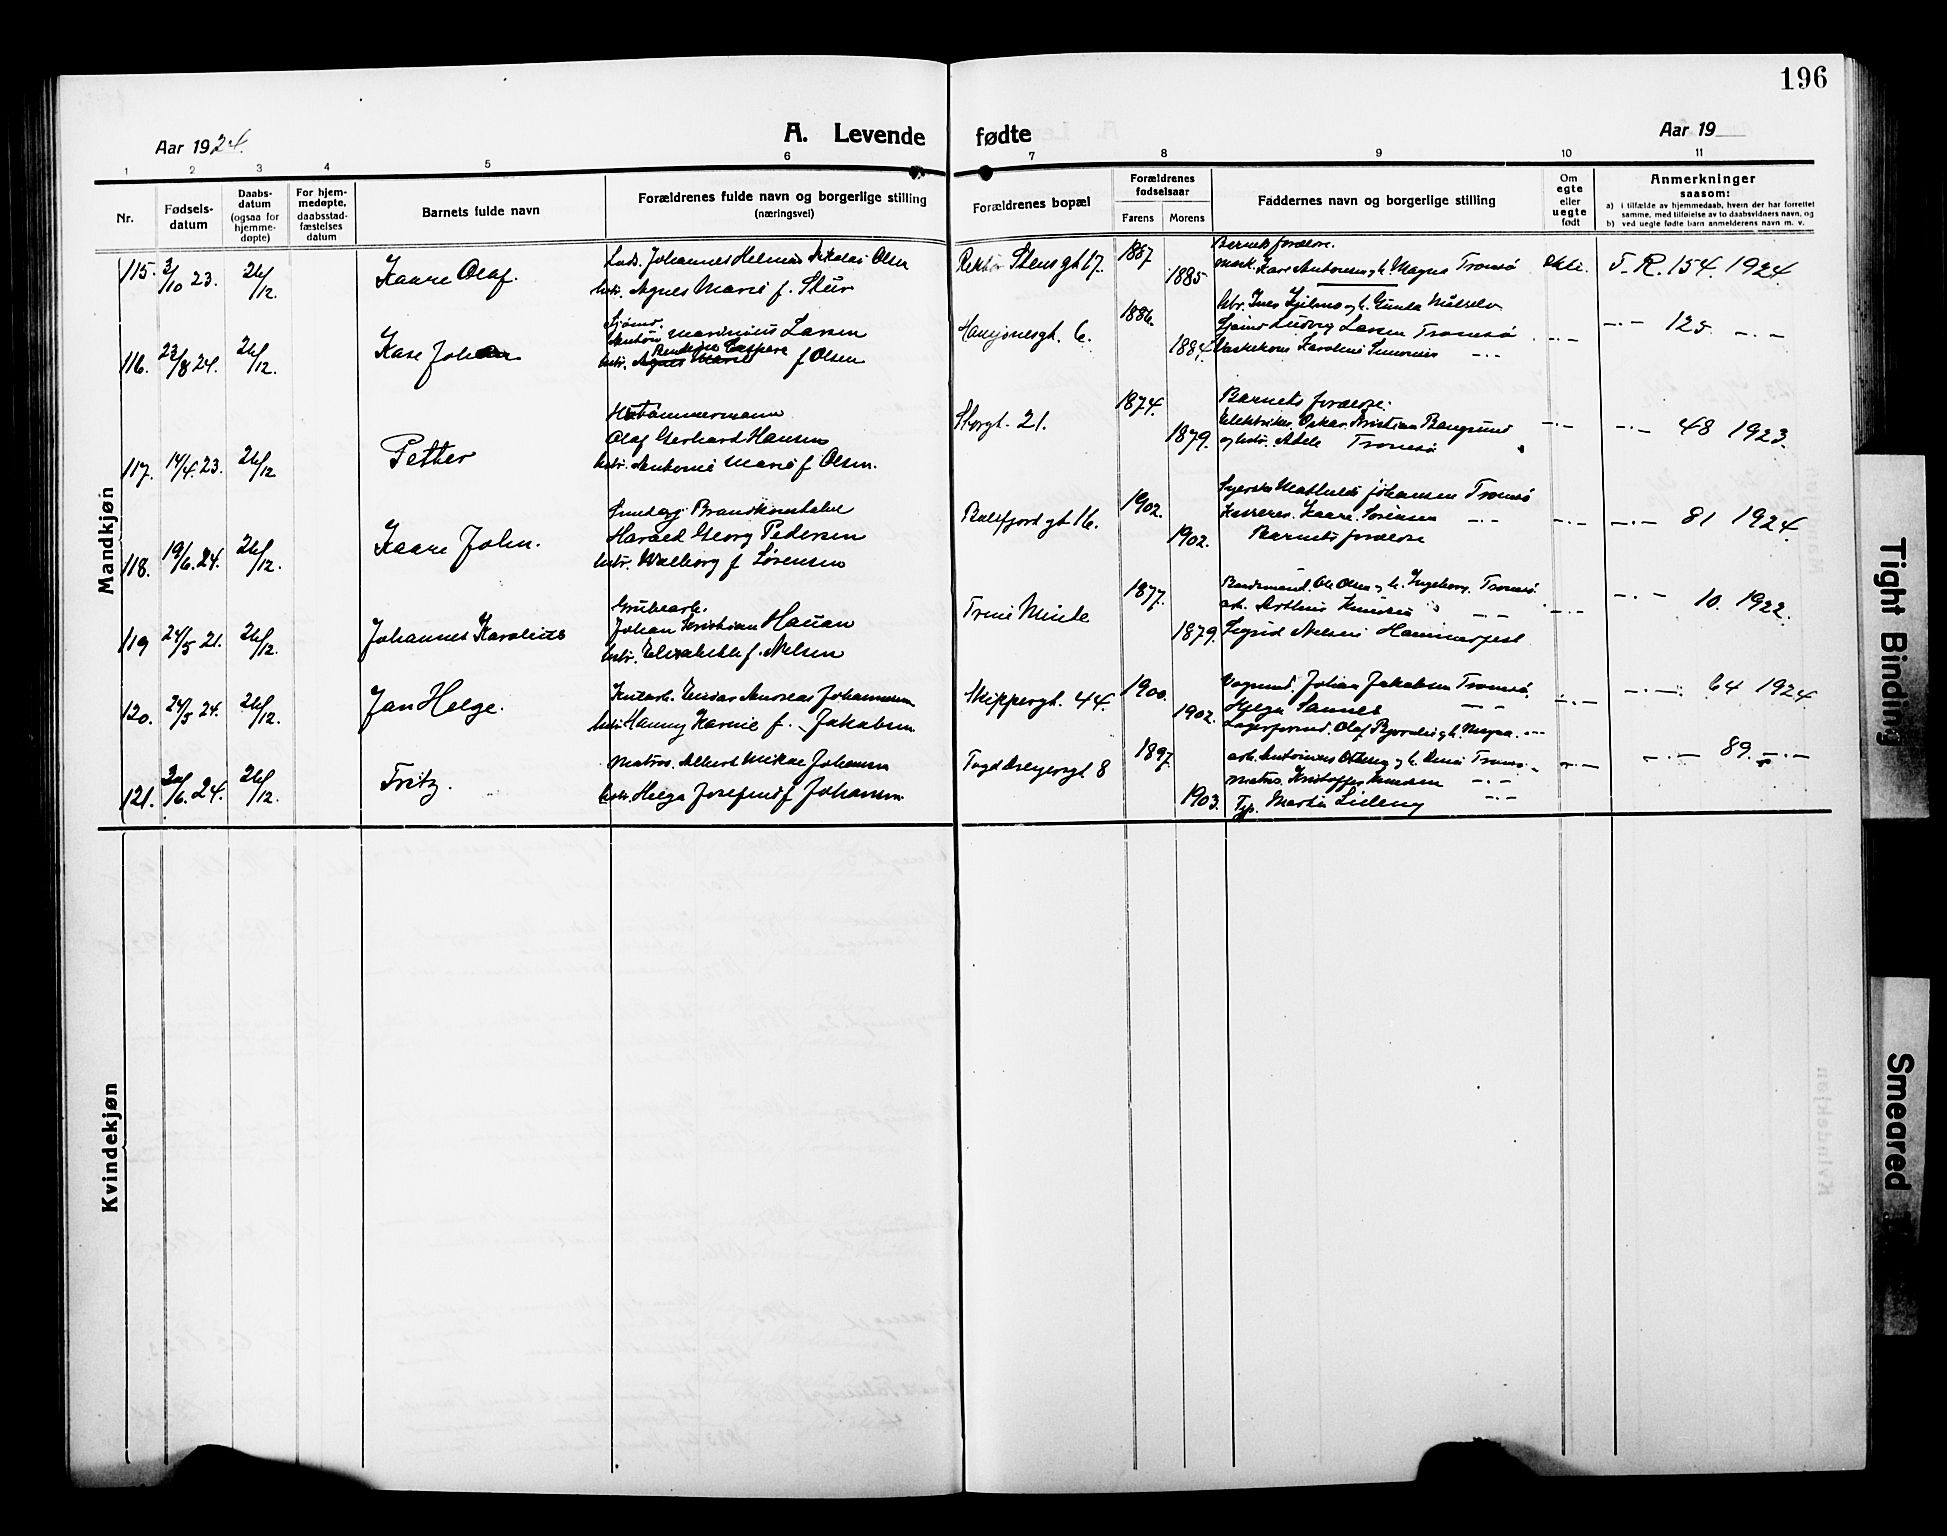 196
Aar 1924.
A. Levende fødte
Aar 19
1 2 3 4 5 6 7 8 9 10 11
Nr.
Fødsels-
datum
Daabs-
datum
(ogsaa for
hjemme-
døpte)
For hjem-
medøpte,
daabsstad-
fæstelses
datum
Barnets fulde navn
Forældrenes fulde navn og borgerlige stilling
(næringsvei)
Forældrenes bopæl
Forældrenes
fødselsaar
Farens Morens
Faddernes navn og borgerlige stilling
Om
egte
eller
uegte
født
Anmerkninger
saasom:
a) i tilfælde av hjemmedaab, hvem der har forrettet
samme, med tilføielse av to daabsvidners navn, og
b) ved uegte fødte barn anmelderens navn m. v.
Mandkjøn
115. 3/10 23. 26/12. Kaare Olaf.
Johannes Helmer Nikolai Olsen
hstr. Agnes Marie f. Stur
Rektor Stensgt 17. 1887 1885
Barnets forældre.
Kare Antonsen g h. Magna Tromsø
ekte. T. R. 154. 1924
116. 22/8 24. 26/12. Kare Johan
Sjømd.
Anton Marinius Larsen
hstr. Agnes Marie f Olsen
Hansjonesgt. 6. 1886. 1884
Sjømd Ludvig Larsen Tromsø
Vaskekone Karoline Simonsen -·-
-·- -·- 125 -·-
117. 14/4. 23. 26/12 Petter
Olaf Gerhard Hansen
hstr. Antonie Marie f Olsen.
Storgt. 21. 1874. 1879.
Barnets forældre.
Elektriker Oskar Kristian Bangsund
og hstr. Adele Tromsø
-·- -·- 48 1923.
118. 19/6. 24. 26/12. Kaare John.
Brandkonstabel
Harald Georg Pedersen
hstr. Walborg f Sørensen
Balsfjordgt 16. 1902. 1902.
Syerske Mathilde Johansen Tromsø
Kaare Sørensen -·-
Barnets forældre
-·- -·- 81 1924
119 24/5 21. 26/12. Johannes Karolius
Grubearb.
Johan Kristian Hauan
hstr. Elisabeth f. Nelsen
Trine Minde 1877. 1879.
Ole Olsen g h. Ingeborg. Tromsø.
Sigrid Nelsen Hammerfest
-·- -·- 10. 1922.
120. 24/5 24. 26/12. Jan Helge.
Einar Andreas Johannesen
hstr. Hanny Karine f. Jakobsen
Skippergt. 44. 1900. 1902.
Vognmd. Johan Jakobsen Tromsø
Helga Sannes -·-
-·- -·- 64 1924
121. 20/6. 24. 26/12. Fritz.
Matros. Albert Mikal Johansen
hstr. Helga Josefine f Johansen
Fogd Dreyersgt 8 1897. 1903.
Matros Kristoffer -·-
Typ. Martin -·-
-·- -·- 89. -·-
Kvindekjøn
Tight Binding
Smeared